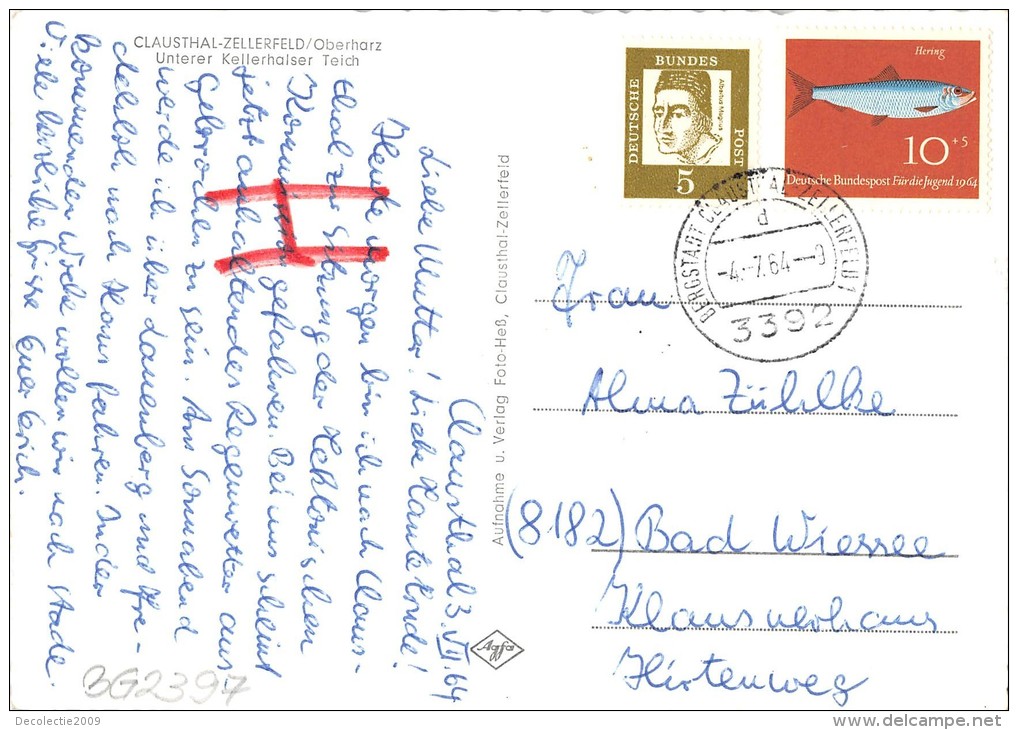 CLAUSTHAL-ZELLERFELD/Oberharz
Unterer Kellerhalser Teich
Clausthal 3. VII. 64
Liebe Mutter! Liebe Tante
Heute morgen bin ich nach Claus-
thal zur Sitzung der
Kommission gefahren. Bei uns scheint
jetzt anhaltendes Regenwetter aus-
gebrochen zu sein. Am Sonnabend
werde ich über und
nach Hause fahren. In der
kommenden Woche wollen wir nach Stade.
Viele herzliche Grüsse Euer Erich.
Aufnahme u. Verlag Foto-Heß, Clausthal-Zellerfeld
Agfa
DEUTSCHE
BUNDES
POST
Albertus Magnus
5
Hering
10 +5
Deutsche Bundespost Für die Jugend 1964
BERGSTADT CLAUSTHAL-ZELLERFELD 1
d
-4.-7.64--
3392
Frau
Alma Zühlke
(8182) Bad Wiessee
Klausnerhaus
Hirtenweg
3G2397
Decolectie2009
delcampe.net